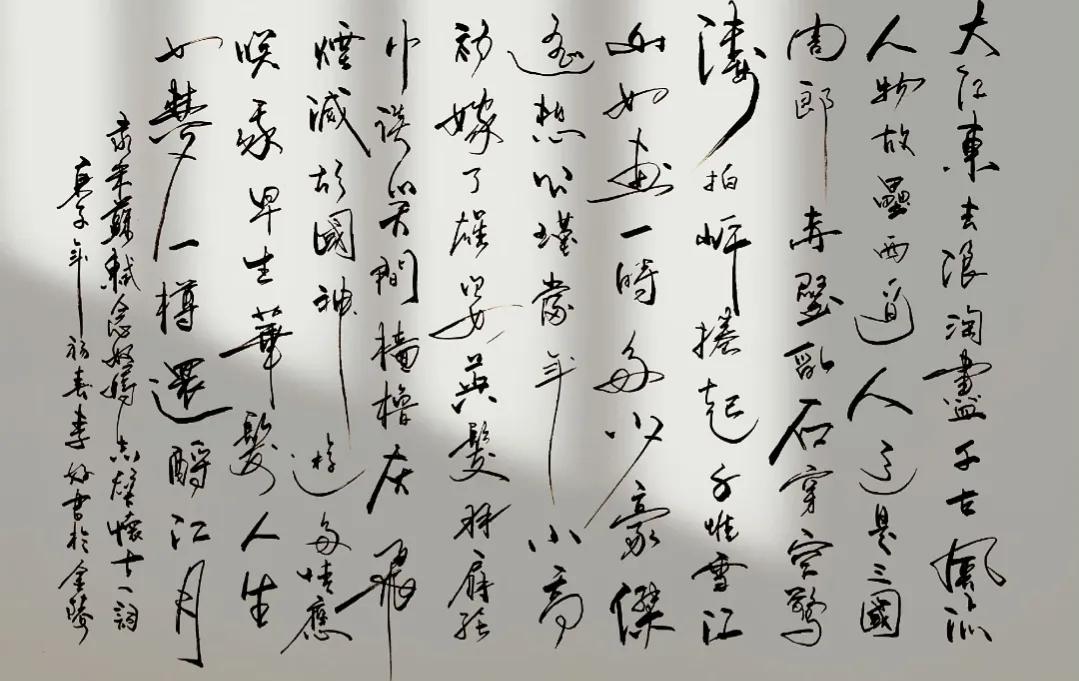 大江東去浪淘盡千古風流
人物故壘西邊人道是三國
周郎赤壁亂石穿空驚
濤拍岸捲起千堆雪江
山如畫一時多少豪傑
遙想公瑾當年小喬
初嫁了雄姿英發羽扇綸
巾談笑間檣櫓灰飛
煙滅故國神遊多情應
笑我早生華髮人生
如夢一樽還酹江月
录宋蘇軾念奴嬌赤壁懷古一詞
庚子年初春李好書於金陵